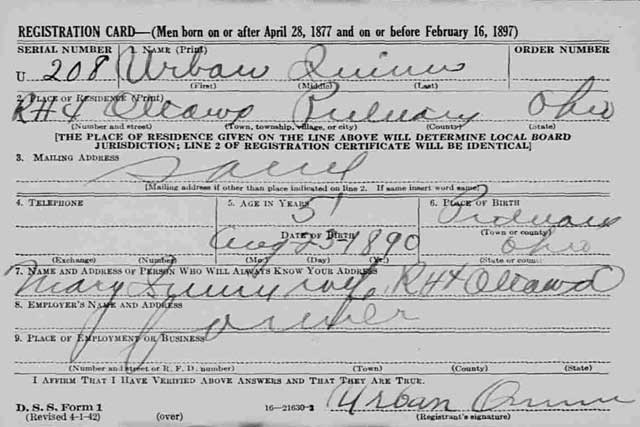 REGISTRATION CARD—(Men born on or after April 28, 1877 and on or before February 16, 1897)
SERIAL NUMBER 1. NAME (Print) ORDER NUMBER
U 208 Urban Quinn
(First) (Middle) (Last)
2. PLACE OF RESIDENCE (Print)
R#4 Ottawa Putnam Ohio
(Number and street) (Town, township, village, or city) (County) (State)
[THE PLACE OF RESIDENCE GIVEN ON THE LINE ABOVE WILL DETERMINE LOCAL BOARD
JURISDICTION; LINE 2 OF REGISTRATION CERTIFICATE WILL BE IDENTICAL]
3. MAILING ADDRESS
Same
[Mailing address if other than place indicated on line 2. If same insert word same]
4. TELEPHONE 5. AGE IN YEARS 6. PLACE OF BIRTH
51 Putnam
DATE OF BIRTH (Town or county)
Aug 25 1890 Ohio
(Exchange) (Number) (Mo.) (Day) (Yr.) (State or country)
7. NAME AND ADDRESS OF PERSON WHO WILL ALWAYS KNOW YOUR ADDRESS
Mary Quinn wife R#4 Ottawa
8. EMPLOYER'S NAME AND ADDRESS
9. PLACE OF EMPLOYMENT OR BUSINESS
(Number and street or R. F. D. number) (Town) (County) (State)
I AFFIRM THAT I HAVE VERIFIED ABOVE ANSWERS AND THAT THEY ARE TRUE.
Urban Quinn
D. S. S. Form 1
(Revised 4-1-42) (over) 16—21630-2 (Registrant's signature)